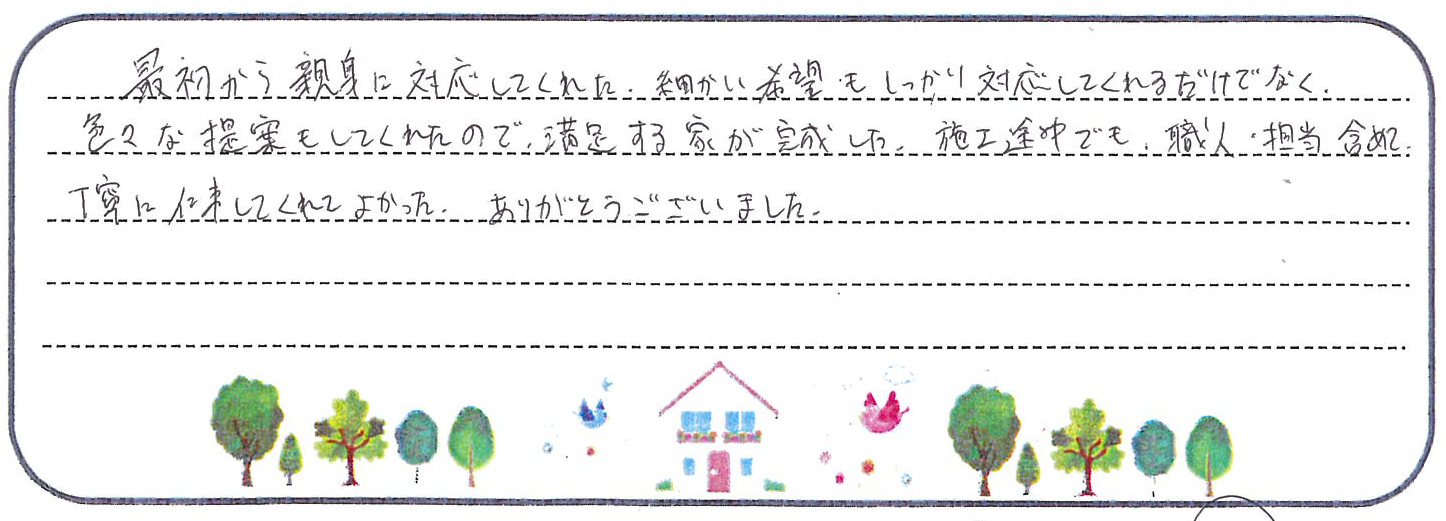 最初から親身に対応してくれた。細かい希望もしっかり対応してくれるだけでなく、
色々な提案もしてくれたので、満足する家が完成した。施工途中でも、職人・担当含めて、
丁寧に仕事してくれてよかった。ありがとうございました。